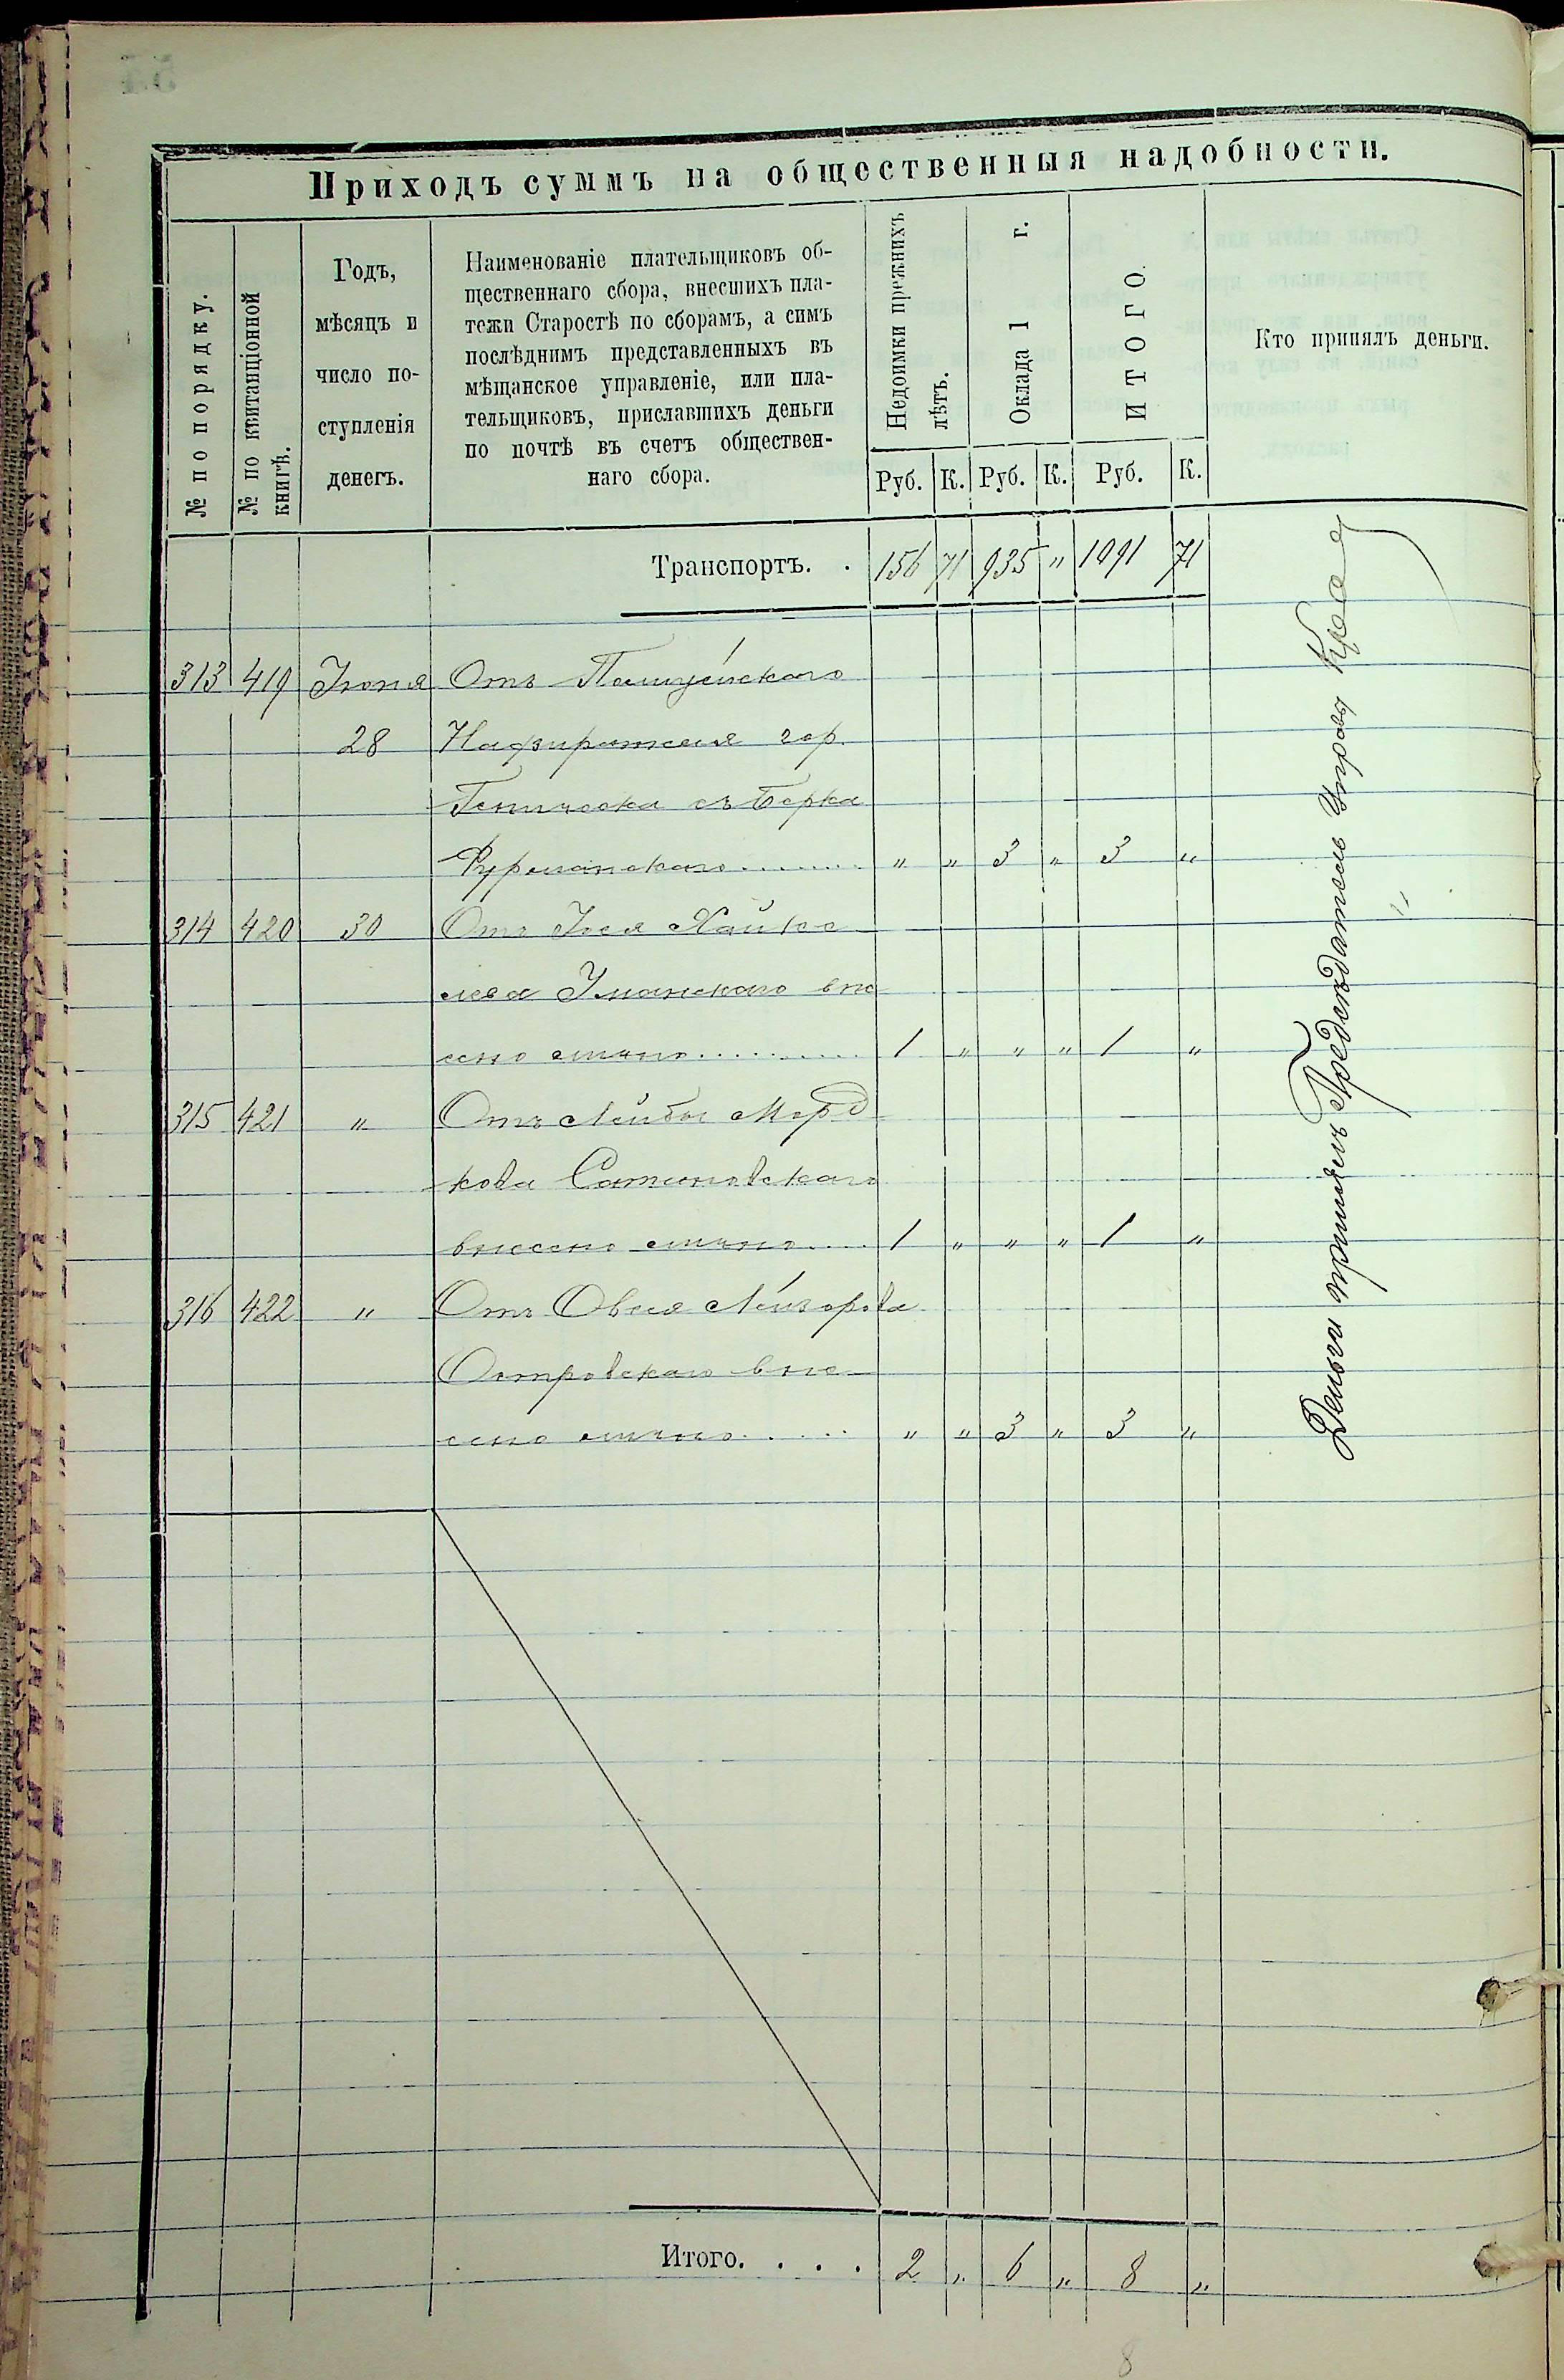 Приходъ суммъ на общественныя надобности.
№ по порядку.
№ по квитанціонной книгѣ.
Годъ,
мѣсяцъ и
число по-
ступленія
денегъ.
Наименованіе плательщиковъ об-
щественнаго сбора, внесшихъ пла-
тежи Старостѣ по сборамъ, а симъ
послѣднимъ представленныхъ въ
мѣщанское управленіе, или пла-
тельщиковъ, приславшихъ деньги
по почтѣ въ счетъ обществен-
наго сбора.
Недоимки прежнихъ лѣтъ.
Оклада 1 г.
ИТОГО.
Кто принялъ деньги.
Руб. К. Руб. К. Руб. К.
Транспортъ. . 156 71 935 " 1091 71
313 419 Іюня Отъ Полицейскаго
28 Надзирателя гор.
Геническа съ Берка
Фурманскаго " " 3 " 3 "
314 420 30 Отъ Іося Хайке
лева Уманскаго вне
сено лично 1 " " " 1 "
315 421 " Отъ Лейбы Морд
кова Сатановскаго
внесено лично 1 " " " 1 "
316 422 " Отъ Овсея Лейзорова
Островскаго вне
сено лично " " 3 " 3 "
Деньги принялъ Предсѣдатель Управы
Итого. . . . 2 " 6 " 8 "
8